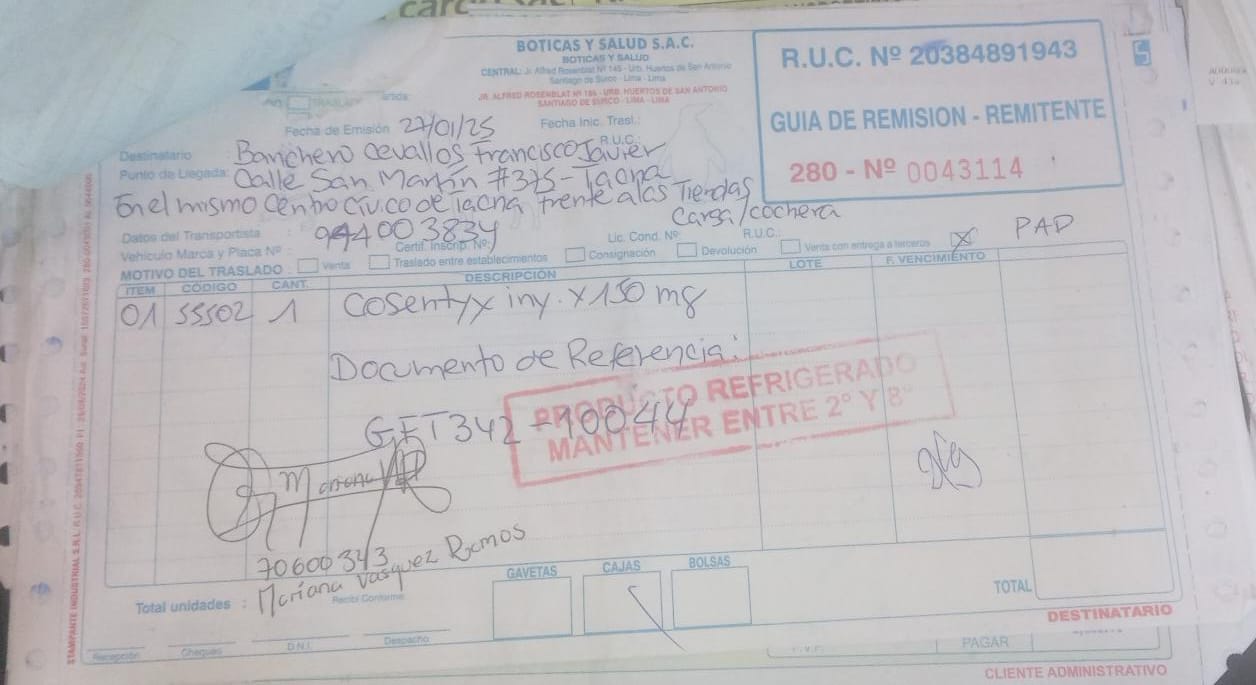 BOTICAS Y SALUD S.A.C.
BOTICAS Y SALUD
CENTRAL: Jr. Alfred Rosenblat Nº 145 - Urb. Huertos de San Antonio
Santiago de Surco - Lima - Lima
JR. ALFRED ROSENBLAT Nº 186 - URB. HUERTOS DE SAN ANTONIO
SANTIAGO DE SURCO - LIMA - LIMA
R.U.C. Nº 20384891943
GUIA DE REMISION - REMITENTE
280 - Nº 0043114
Fecha de Emisión 27/01/25 Fecha Inic. Trasl.:
Destinatario Banchero Cevallos Francisco Javier R.U.C.:
Punto de Llegada: Calle San Martín #375 - Tacna
En el mismo centro cívico de Tacna frente a las Tiendas
Carga/cochera
Datos del Transportista : 944003834
Vehículo Marca y Placa Nº : Certif. Inscrip. Nº: Lic. Cond. Nº R.U.C.:
MOTIVO DEL TRASLADO : Venta Traslado entre establecimientos Consignación Devolución Venta con entrega a terceros X PAD
ITEM CÓDIGO CANT. DESCRIPCIÓN LOTE F. VENCIMIENTO
01 55502 1 Cosentyx iny. x 150 mg
Documento de Referencia:
PRODUCTO REFRIGERADO
MANTENER ENTRE 2º Y 8º
GFT342-10044
Mariana
70600343
Mariana Vasquez Ramos
Total unidades : Recibí Conforme
GAVETAS CAJAS BOLSAS
TOTAL
DESTINATARIO
Recepción Chequeo D.N.I. Despacho
PAGAR
CLIENTE ADMINISTRATIVO